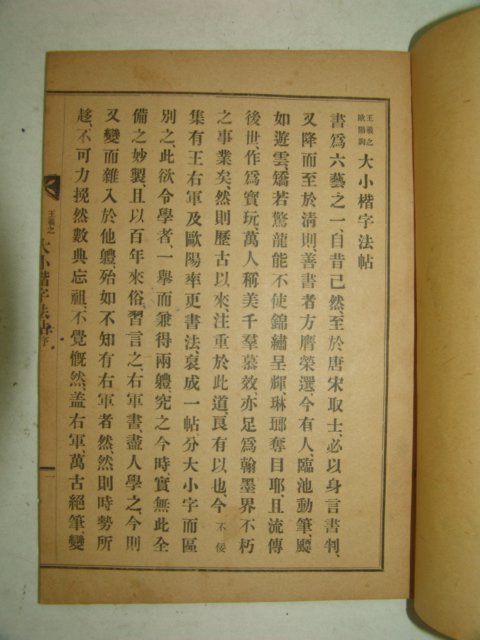 王羲之
歐陽詢 大小楷字法帖
書爲六藝之一、自昔已然、至於唐宋取士、必以身言書判、
又降而至於淸則、善書者方膺榮選、今有人、臨池動筆、飂
如遊雲、矯若驚龍能不使錦繡呈輝、琳瑯奪目耶、且流傳
後世、作爲寶玩、萬人稱美千群慕效、亦足爲翰墨界不朽
之事業矣、然則歷古以來、注重於此道、良有以也、今不佞
集有王右軍及歐陽率更書法、裒成一帖、分大小字而區
別之、此欲令學者、一擧而兼得兩軆究之今時實無此全
備之妙製、且以百年來俗習言之、右軍書、盡人學之、今則
又變而雜入於他軆殆如不知有右軍者然、然則時勢所
趍、不可力挽然數典忘祖、不覺慨然、盖右軍、萬古絕筆變
王羲之 大小楷字法帖 序 一